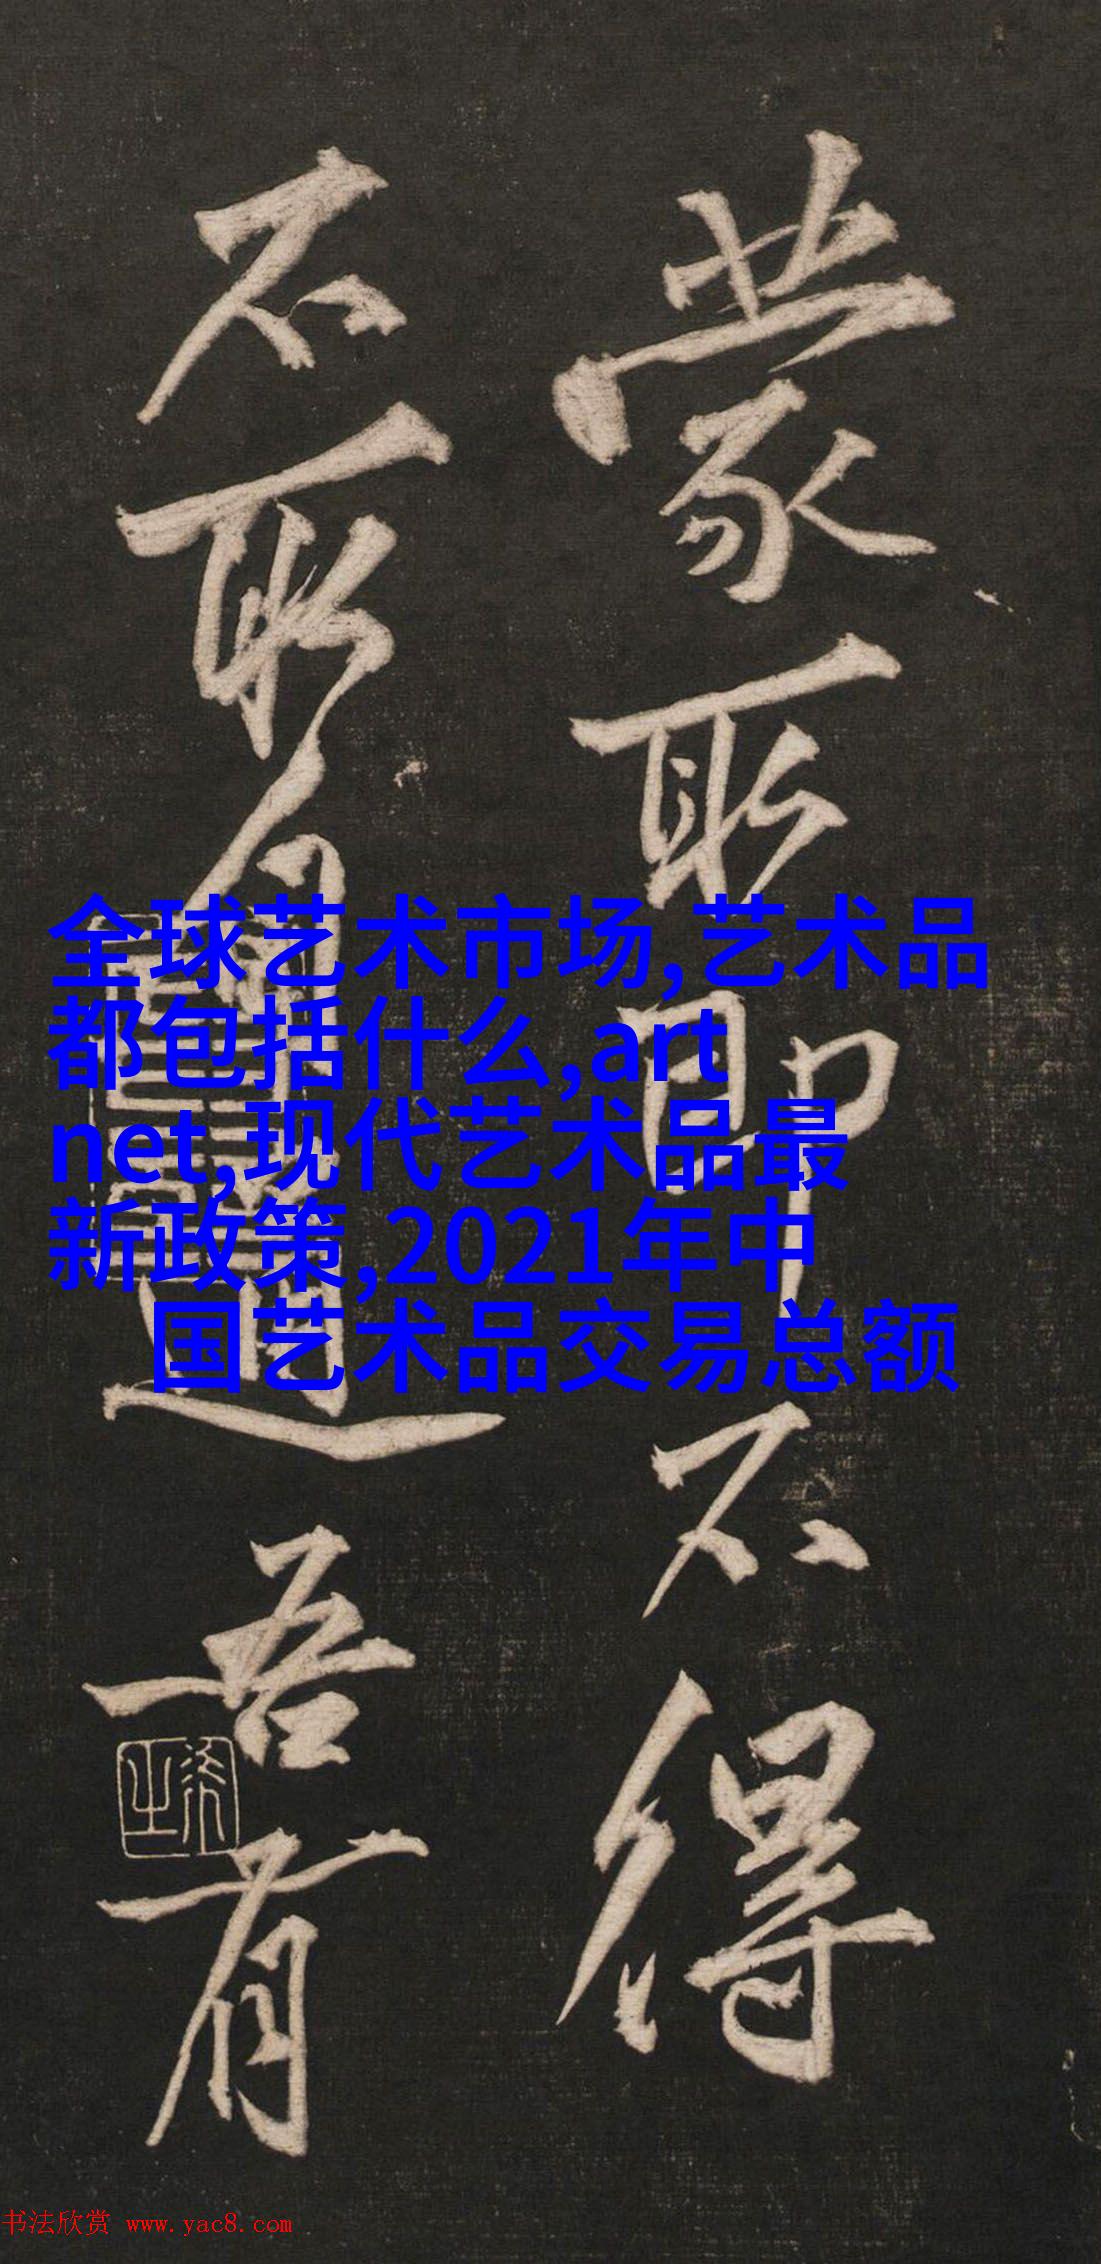 蒙
不得
不
吾有
全球艺术市场,艺术品
都包括什么,art
net,现代艺术品最
新政策,2021年中
国艺术品交易总额
书法欣赏 www.yac8.com